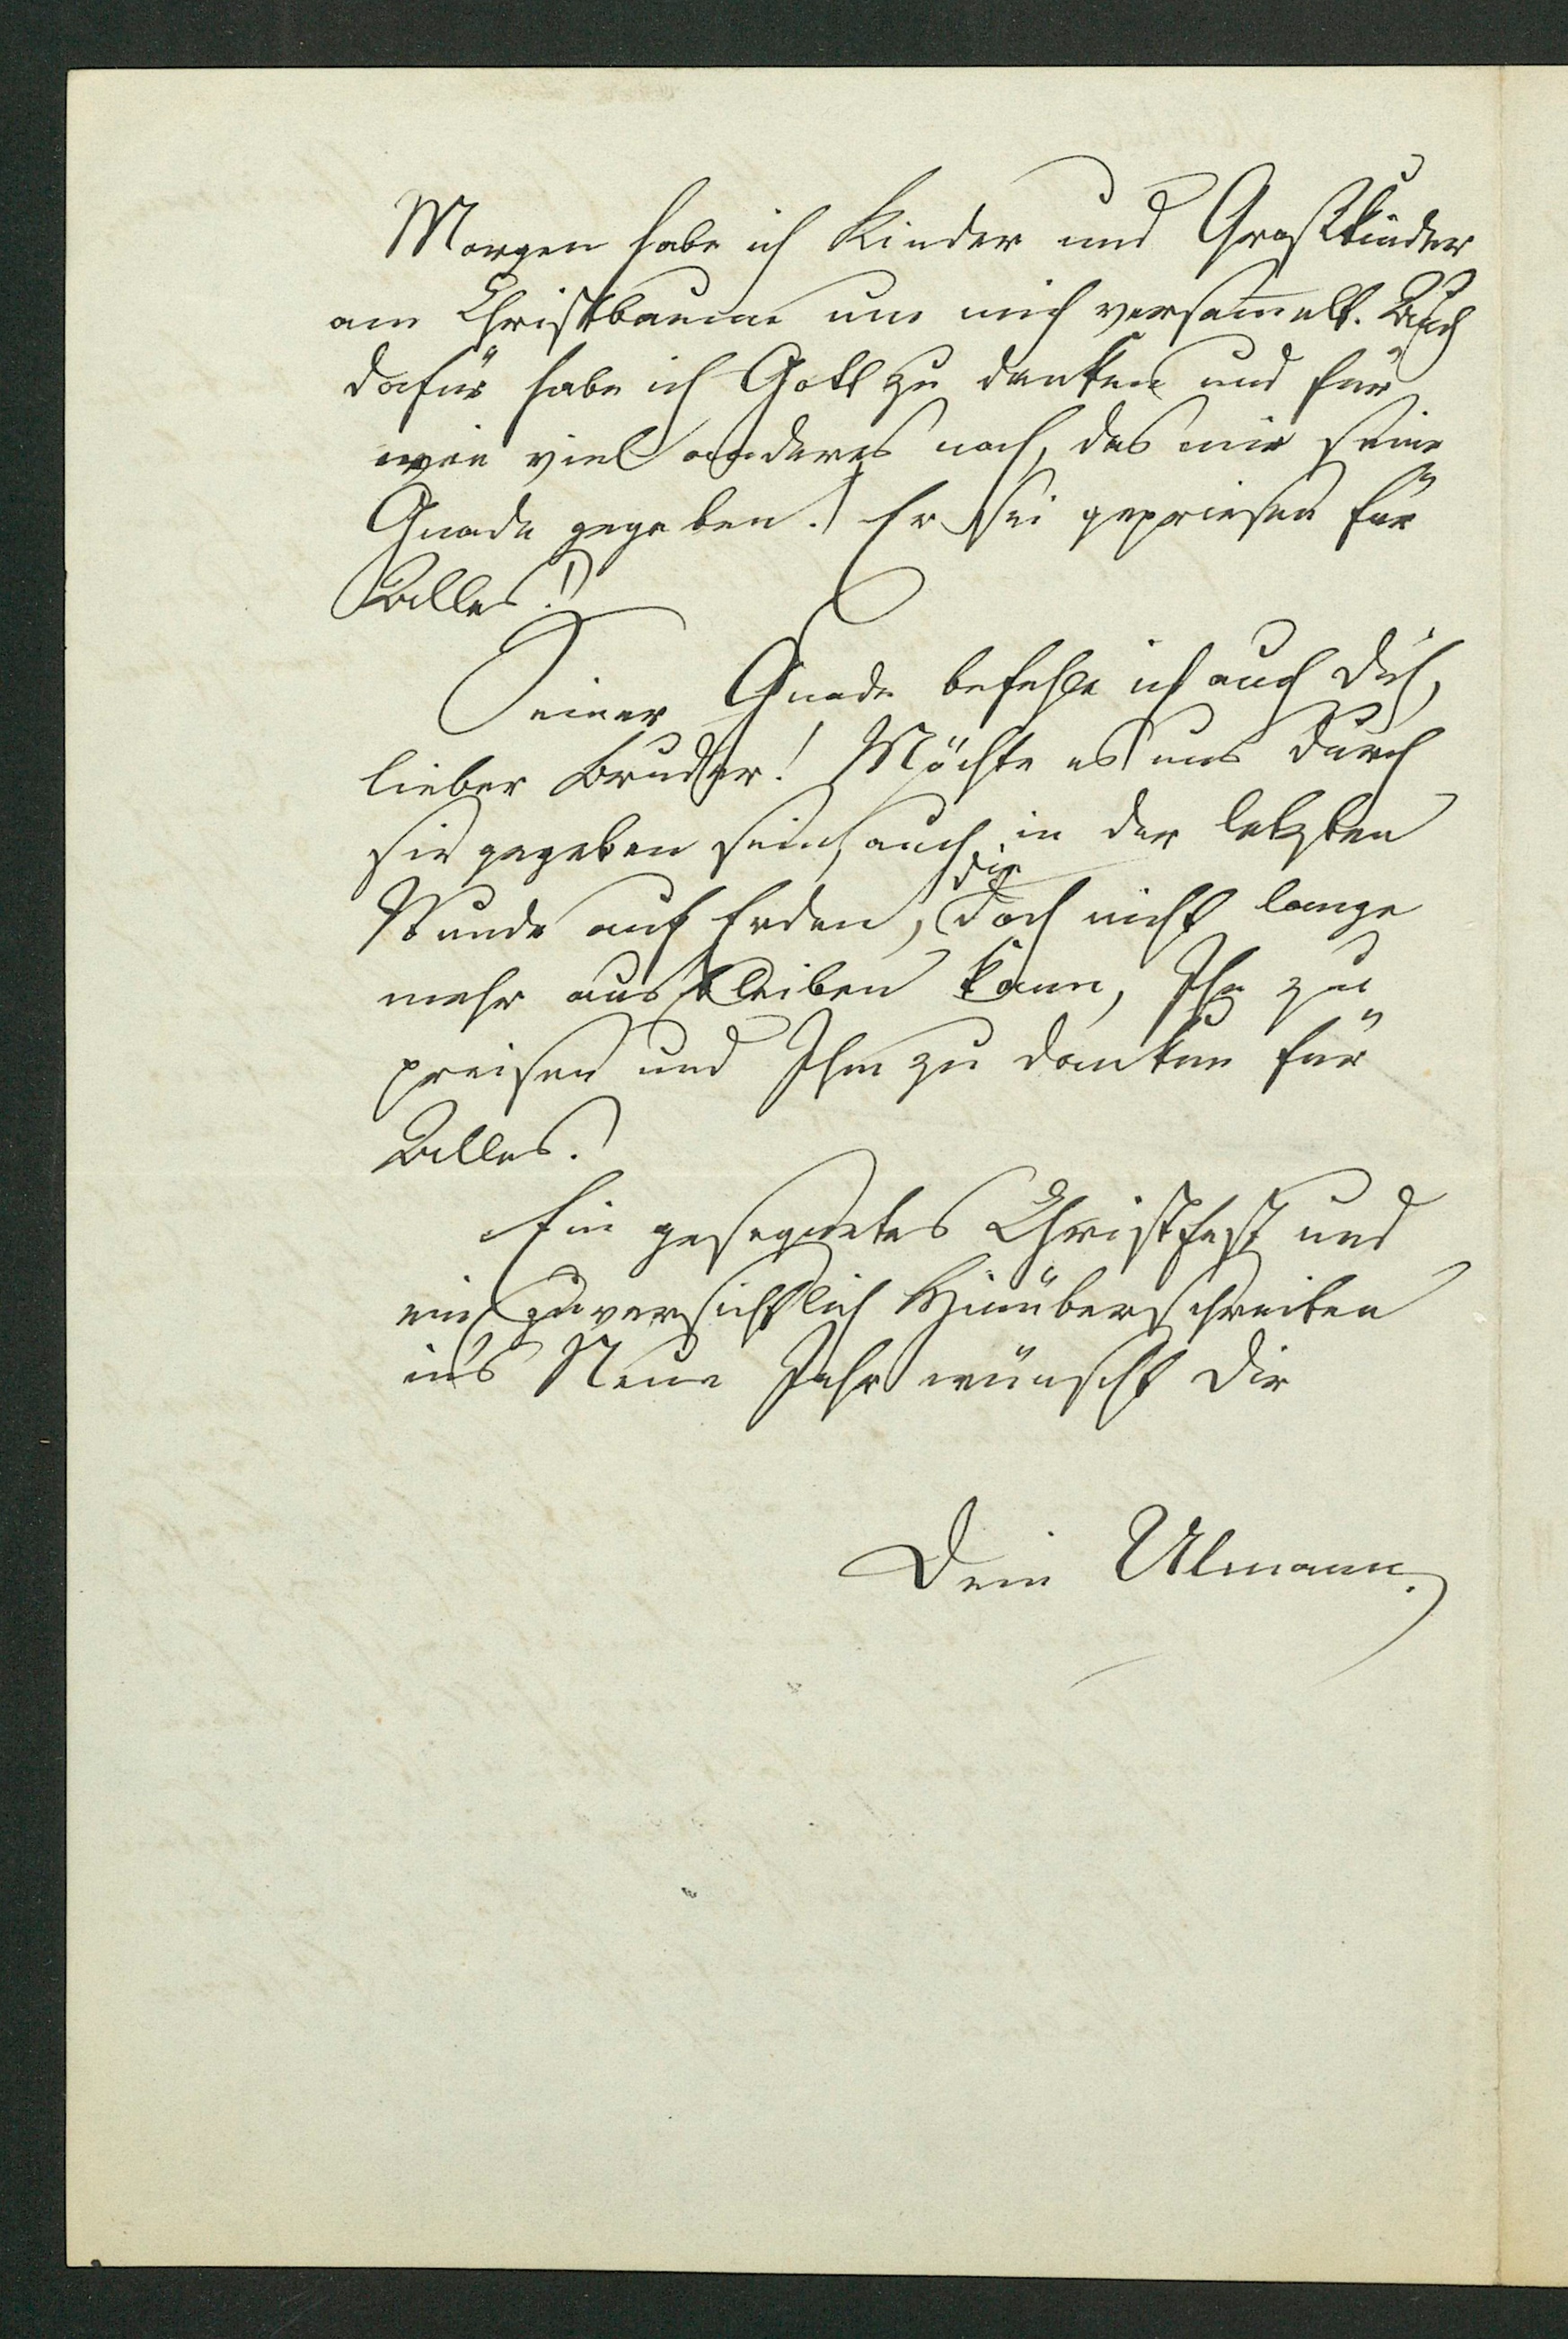 Morgen habe ich Kinder und Großkinder
am Christbaume um mich versam̅elt. Auch
dafür habe ich Gott zu danken und für
wie viel anderes noch, das mir seine
Gnade gegeben! Er sei gepriesen für
Alles!
Seiner Gnade befehle ich auch Dich,
lieber Bruder! Möchte es uns durch
sie gegeben sein, auch in der letzten
Stunde auf Erden, die doch nicht lange
mehr ausbleiben kann, Ihn zu
preisen und Ihm zu danken für
Alles.
Ein gesegnetes Christfest und
ein zuversichtlich Hinüberschreiten
in's Neue Jahr wünscht Dir
Dein Ulmann.